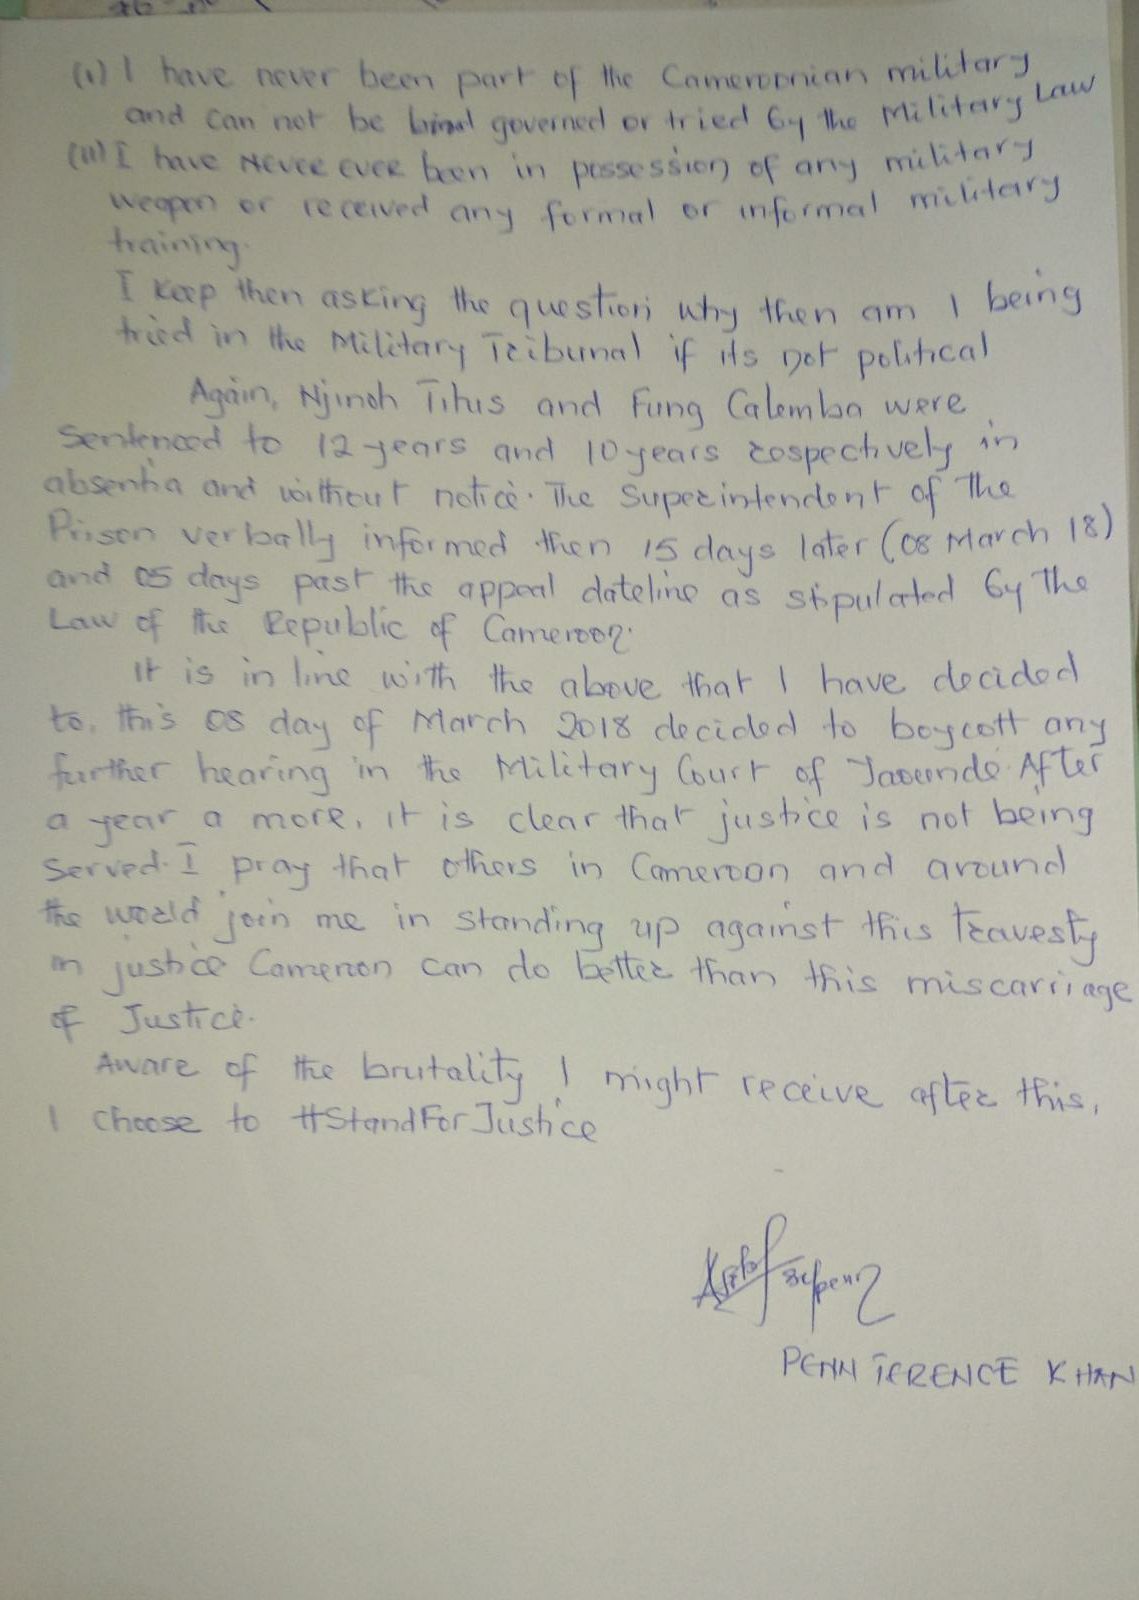 (i) I have never been part of the Cameroonian military
and can not be governed or tried by the Military Law
(ii) I have NEVER EVER been in possession of any military
weapon or received any formal or informal military
training.
I keep then asking the question why then am I being
tried in the Military Tribunal if its not political
Again, Njinoh Titus and Fung Calemba were
sentenced to 12 years and 10 years respectively in
absentia and without notice. The Superintendent of the
Prison verbally informed then 15 days later (08 March 18)
and 05 days past the appeal dateline as stipulated by the
Law of the Republic of Cameroon.
It is in line with the above that I have decided
to, this 08 day of March 2018 decided to boycott any
further hearing in the Military Court of Yaounde. After
a year a more, it is clear that justice is not being
served. I pray that others in Cameroon and around
the world join me in standing up against this travesty
in justice Cameroon can do better than this miscarriage
of Justice.
Aware of the brutality I might receive after this,
I choose to #StandForJustice
PENN TERENCE KHAN